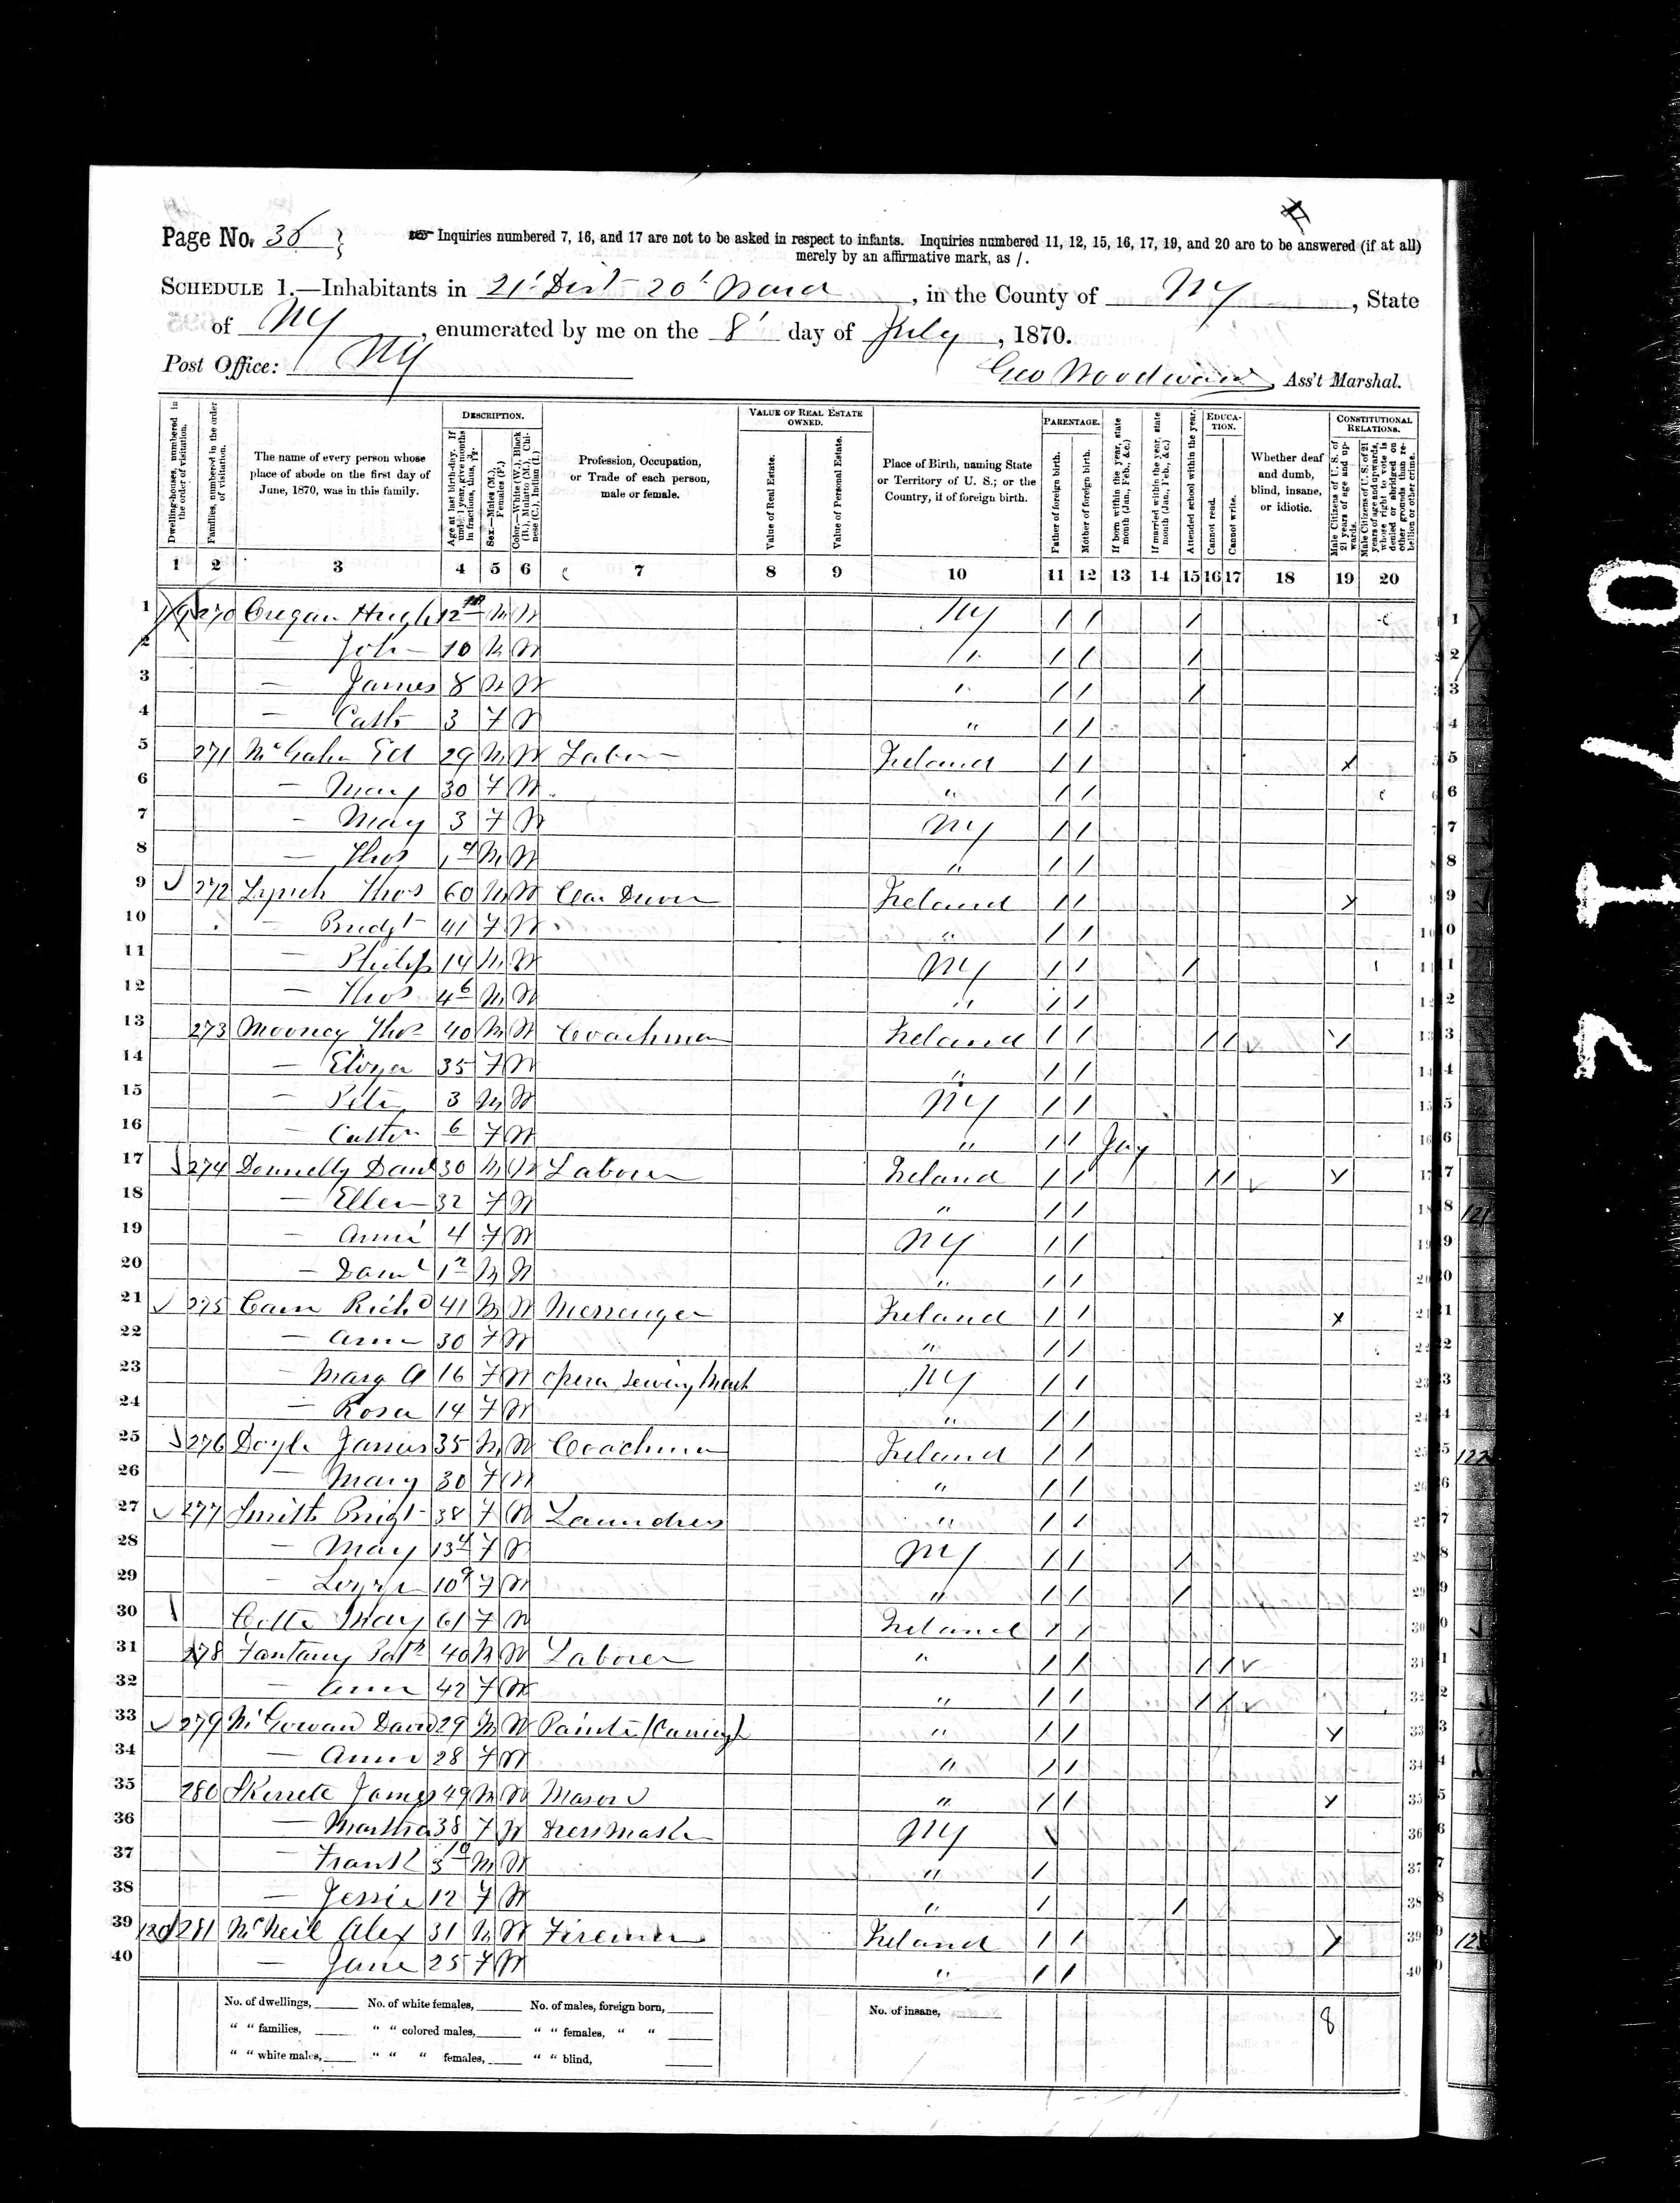 Page No. 36
Inquiries numbered 7, 16, and 17 are not to be asked in respect to infants. Inquiries numbered 11, 12, 15, 16, 17, 19, and 20 are to be answered (if at all)
merely by an affirmative mark, as /.
SCHEDULE 1.—Inhabitants in 21' Dist 20' Ward, in the County of NY, State
of NY, enumerated by me on the 8' day of July, 1870.
Post Office: NY
Geo Woodward, Ass't Marshal.
Dwelling-houses, numbered in the order of visitation.
Families, numbered in the order of visitation.
The name of every person whose place of abode on the first day of June, 1870, was in this family.
DESCRIPTION.
Age at last birth-day. If under 1 year, give months in fractions, thus, 3/12.
Sex.—Males (M.), Females (F.)
Color.—White (W.), Black (B.), Mulatto (M.), Chinese (C.), Indian (I.)
Profession, Occupation, or Trade of each person, male or female.
VALUE OF REAL ESTATE OWNED.
Value of Real Estate.
Value of Personal Estate.
Place of Birth, naming State or Territory of U. S.; or the Country, if of foreign birth.
PARENTAGE.
Father of foreign birth.
Mother of foreign birth.
If born within the year, state month (Jan., Feb., &c.)
If married within the year, state month (Jan., Feb., &c.)
Attended school within the year.
EDUCATION.
Cannot read.
Cannot write.
Whether deaf and dumb, blind, insane, or idiotic.
CONSTITUTIONAL RELATIONS.
Male Citizens of U. S. of 21 years of age and upwards.
Male Citizens of U. S. of 21 years of age and upwards, whose right to vote is denied or abridged on other grounds than rebellion or other crime.
1 2 3 4 5 6 7 8 9 10 11 12 13 14 15 16 17 18 19 20
1 270 Cregan Hugh 12 M W NY / / /
2 — John 10 M W " / / /
3 — James 8 M W " / / /
4 — Cath 3 F W " / /
5 271 McGahn Ed 29 M W Labor Ireland / /
6 — Mary 30 F W " / /
7 — Mary 3 F W NY / /
8 — Thos 1 M W " / /
9 272 Lynch Thos 60 M W Car Driver Ireland / /
10 — Bridgt 41 F W " / /
11 — Philip 14 M W NY / / /
12 — Thos 4 6 M W " / /
13 273 Mooney Thos 40 M W Coachman Ireland / / / /
14 — Eliza 35 F W " / /
15 — Peter 3 M W NY / /
16 — 6 F W " / /
17 274 Donnelly Danl 30 M W Laborer Ireland / / / /
18 — Ellen 32 F W " / /
19 — Annie 4 F W NY / /
20 — Danl 1 2 M W " / /
21 275 Cain Richd 41 M W Messenger Ireland / /
22 — Ann 30 F W " / /
23 — Mary A 16 F W Opera Sewing Mach NY / /
24 — Rosa 14 F W " / /
25 276 Doyle James 35 M W Coachman Ireland / /
26 — Mary 30 F W " / /
27 277 Smith Brigt 38 F W Laundress " / /
28 — Mary 13 4 F W NY / / /
29 — Lizzie 10 9 F W " / / /
30 Mary 61 F W Ireland / /
31 278 Patk 40 M W Laborer " / / / /
32 — Ann 42 F W " / / / /
33 279 McGowan David 29 M W Painter " / /
34 — Annie 28 F W " / /
35 280 James 49 M W Mason " / /
36 — Martha 38 F W Dressmaker NY
37 — Frank 3 10 M W " /
38 — Jessie 12 F W " / /
39 120 281 McNeil Alex 31 M W Fireman Ireland / /
40 — Jane 25 F W " / /
No. of dwellings, No. of white females, No. of males, foreign born, No. of insane, 8
" " families, " " colored males, " " females, " "
" " white males, " " " females, " " blind,